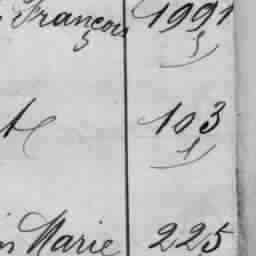 François 1991
5
103
1
Marie 225